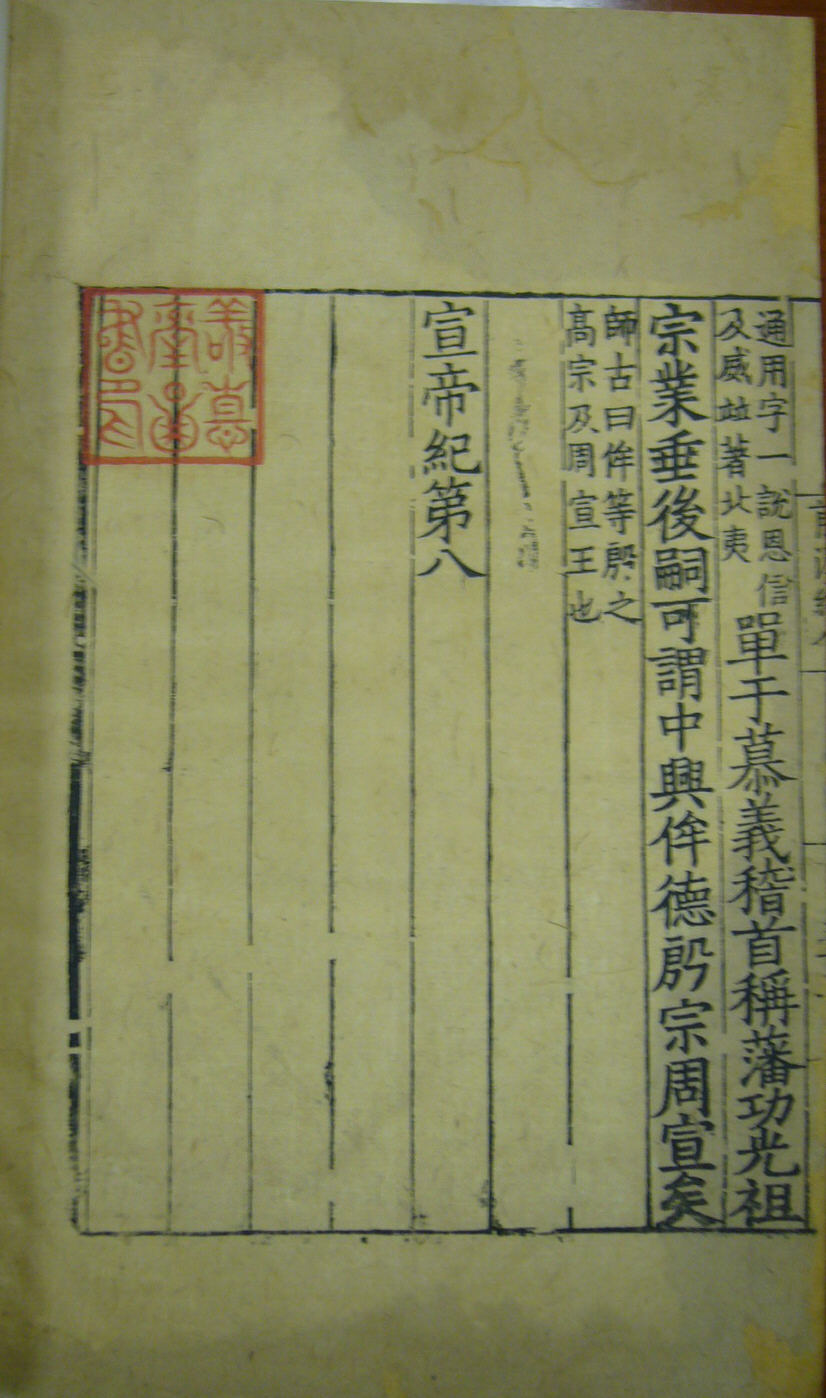 通用字一說恩信
及威竝著北夷
單于慕義稽首稱藩功光祖
宗業垂後嗣可謂中興侔德殷宗周宣矣
師古曰侔等殷之
髙宗及周宣王也
宣帝紀第八